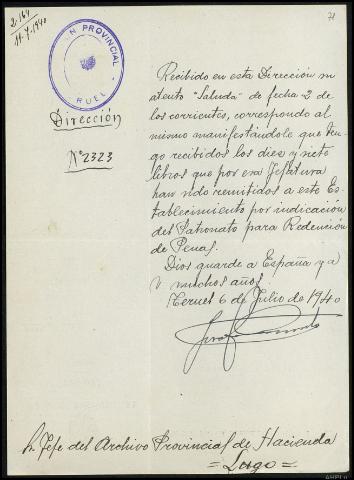 2.164
11-7-1940
71
N PROVINCIAL
RUEL
Dirección
Nº 2323
Recibido en esta Dirección su
atento "Saluda" de fecha 2 de
los corrientes, correspondo al
mismo manifestándole que ten-
go recibidos los diez y siete
libros que por esa Jefatura
han sido remitidos a este Es-
tablecimiento por indicación
del Patronato para Redención
de Penas.
Dios guarde a España y a
V muchos años.
Teruel 6 de Julio de 1940
Sr. Jefe del Archivo Provincial de Hacienda
= Lugo =